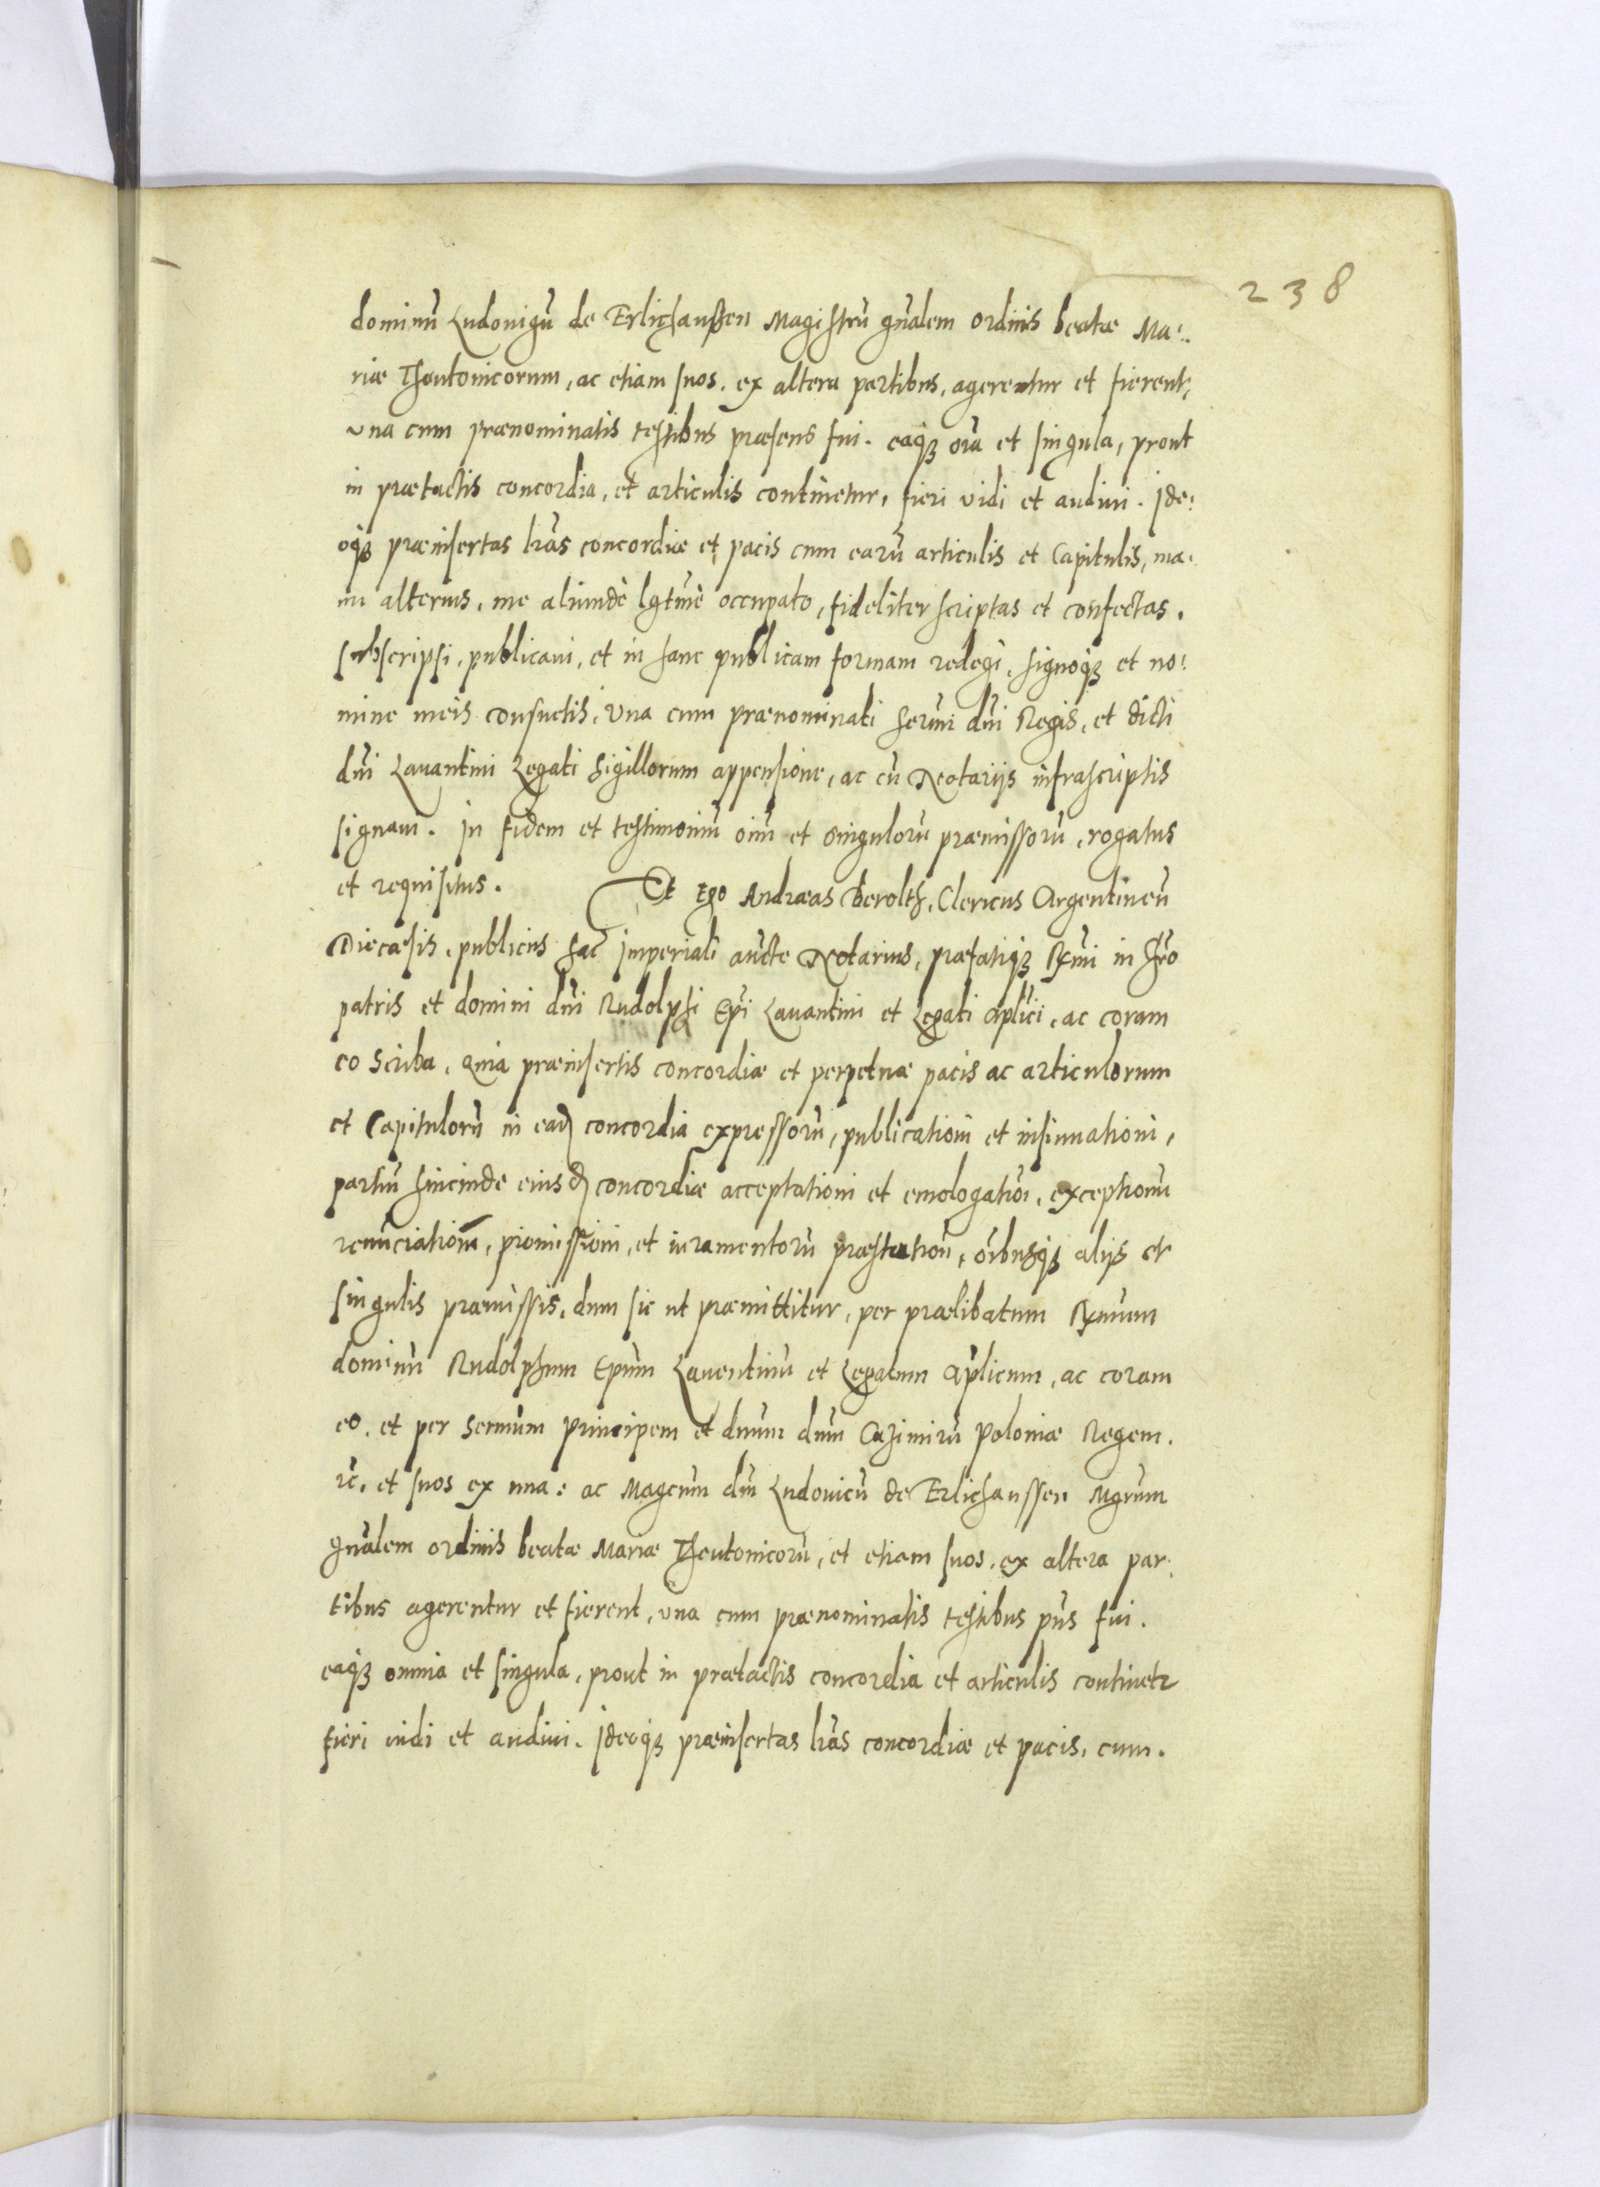 238
dominū Ludouigū de Erlichaußen Magistrū gn̄alem ordinis beatæ Ma:
riæ Theutonicorum, ac etiam suos, ex altera partibus, agerentur et fierent,
vna cum prænominatis testibus præsens fui. eaqȝ oīa et singula, prout
in prætactis concordia, et articulis continetur, fieri vidi et audiui. Ide:
oqȝ præinsertas lr̄as concordiæ et pacis cum earū articulis et Capitulis, ma:
nu alterius, me aliundè lgtm̄è occupato, fideliter scriptas et confectas.
subscripsi, publicaui, et in hanc publicam formam redegi, signoqȝ et no:
mine meis consuetis, vna cum prænominati Serm̄i dn̄i Regis, et dicti
dn̄i Lauantini Legati sigillorum appensione, ac cū Notarijs infrascriptis
signaui. In fidem et testimoniū oīm̄ et singulorū præmissorū, rogatus
et requisitus. Et Ego Andræas Berolth, Clericus Argentineñ
Diecæsis, publicus sac̄ Imperiali aūcte Notarius, præfatiqȝ Rxm̄i in Chr̄o
patris et domini dn̄i Rudolphi Ep̄i Lauantini et Legati Ap̄lici, ac coram
eo Scriba, quia præinsertis concordiæ et perpetuæ pacis ac articulorum
et Capitulorū in ead. concordia expressorū, publicationi et insinuationi,
partiū hincinde eiusd. concordiæ acceptationi et emologatioī, exceptionū
renūciationi, promissioni, et iuramentorū præstatioī, oībusqȝ alijs et
singulis præmissis, dum sic ut præmittitur, per prælibatum Rxm̄um
dominū Rudolphum Ep̄um Lauentinū et Legatum Ap̄licum, ac coram
eo, et per Sermūm Principem et dnūm dn̄m Cazimirū Poloniæ Regem.
rc̄, et suos ex una: ac Magcūm dn̄m Ludouicū de Erlichaussen Mgrūm
gn̄alem ordinis beatæ Mariæ Theutonicorū, et etiam suos, ex altera par:
tibus agerentur et fierent, vna cum prænominatis testibus pn̄s fui.
eaqȝ omnia et singula, prout in prætactis concordia et articulis continetr
fieri uidi et audiui. Ideoqȝ præinsertas lr̄as concordiæ et pacis, cum.